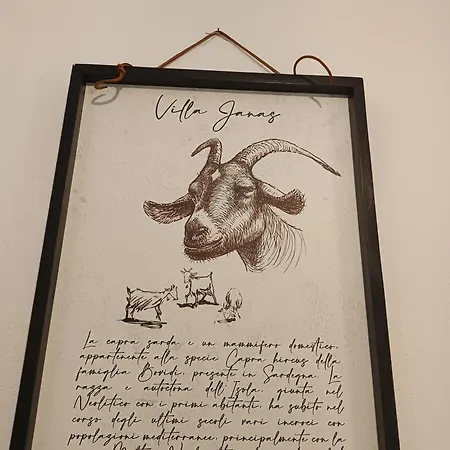 Villa Janas
La capra sarda e un mammifero domestico,
appartenente alla specie Capra hircus della
famiglia Bovidi, presente in Sardegna. La
razza e autoctona dell'Isola, giunta nel
Neolitico con i primi abitanti, ha subito nel
corso degli ultimi secoli vari incroci con
popolazioni mediterranee, principalmente con la